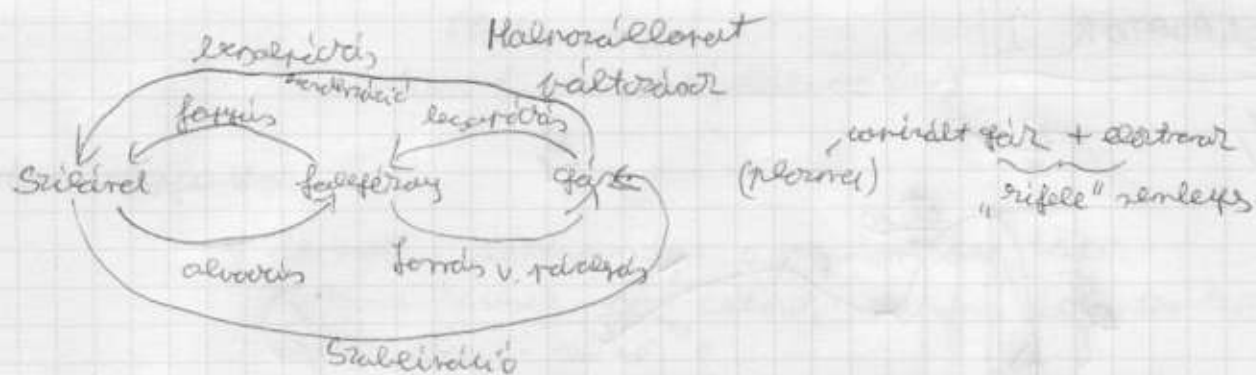 Halmazállapot
változások
lecsapódás
kondenzáció
fagyás
lecsapódás
Szilárd
folyékony
gáz
(plazma)
ionizált gáz + elektronok
"kifelé" semleges
olvadás
forrás v. párolgás
Szublimáció